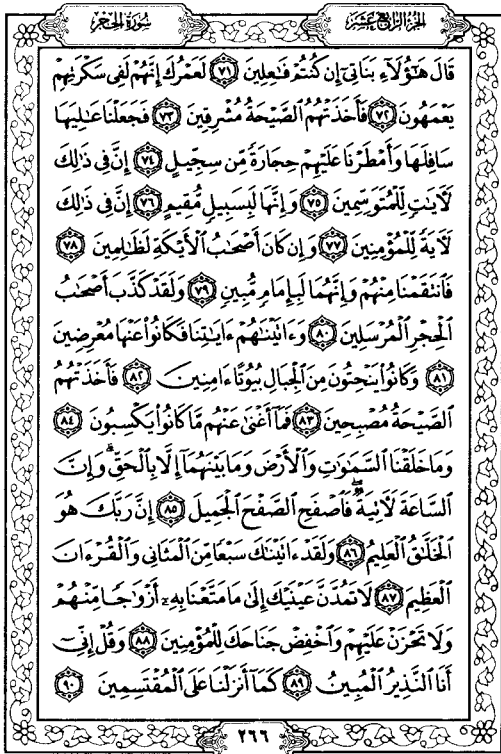 سُورَةُ الحِجْرِ
الجُزْءُ الرَّابِعَ عَشَرَ
قَالَ هَٰٓؤُلَآءِ بَنَاتِىٓ إِن كُنتُمْ فَٰعِلِينَ ٧١ لَعَمْرُكَ إِنَّهُمْ لَفِى سَكْرَتِهِمْ
يَعْمَهُونَ ٧٢ فَأَخَذَتْهُمُ ٱلصَّيْحَةُ مُشْرِقِينَ ٧٣ فَجَعَلْنَا عَٰلِيَهَا
سَافِلَهَا وَأَمْطَرْنَا عَلَيْهِمْ حِجَارَةً مِّن سِجِّيلٍ ٧٤ إِنَّ فِى ذَٰلِكَ
لَءَايَٰتٍ لِّلْمُتَوَسِّمِينَ ٧٥ وَإِنَّهَا لَبِسَبِيلٍ مُّقِيمٍ ٧٦ إِنَّ فِى ذَٰلِكَ
لَءَايَةً لِّلْمُؤْمِنِينَ ٧٧ وَإِن كَانَ أَصْحَٰبُ ٱلْأَيْكَةِ لَظَٰلِمِينَ ٧٨
فَٱنتَقَمْنَا مِنْهُمْ وَإِنَّهُمَا لَبِإِمَامٍ مُّبِينٍ ٧٩ وَلَقَدْ كَذَّبَ أَصْحَٰبُ
ٱلْحِجْرِ ٱلْمُرْسَلِينَ ٨٠ وَءَاتَيْنَٰهُمْ ءَايَٰتِنَا فَكَانُوا۟ عَنْهَا مُعْرِضِينَ
٨١ وَكَانُوا۟ يَنْحِتُونَ مِنَ ٱلْجِبَالِ بُيُوتًا ءَامِنِينَ ٨٢ فَأَخَذَتْهُمُ
ٱلصَّيْحَةُ مُصْبِحِينَ ٨٣ فَمَآ أَغْنَىٰ عَنْهُم مَّا كَانُوا۟ يَكْسِبُونَ ٨٤
وَمَا خَلَقْنَا ٱلسَّمَٰوَٰتِ وَٱلْأَرْضَ وَمَا بَيْنَهُمَآ إِلَّا بِٱلْحَقِّ ۗ وَإِنَّ
ٱلسَّاعَةَ لَءَاتِيَةٌ ۖ فَٱصْفَحِ ٱلصَّفْحَ ٱلْجَمِيلَ ٨٥ إِنَّ رَبَّكَ هُوَ
ٱلْخَلَّٰقُ ٱلْعَلِيمُ ٨٦ وَلَقَدْ ءَاتَيْنَٰكَ سَبْعًا مِّنَ ٱلْمَثَانِى وَٱلْقُرْءَانَ
ٱلْعَظِيمَ ٨٧ لَا تَمُدَّنَّ عَيْنَيْكَ إِلَىٰ مَا مَتَّعْنَا بِهِۦٓ أَزْوَٰجًا مِّنْهُمْ
وَلَا تَحْزَنْ عَلَيْهِمْ وَٱخْفِضْ جَنَاحَكَ لِلْمُؤْمِنِينَ ٨٨ وَقُلْ إِنِّىٓ
أَنَا ٱلنَّذِيرُ ٱلْمُبِينُ ٨٩ كَمَآ أَنزَلْنَا عَلَى ٱلْمُقْتَسِمِينَ ٩٠
٢٦٦